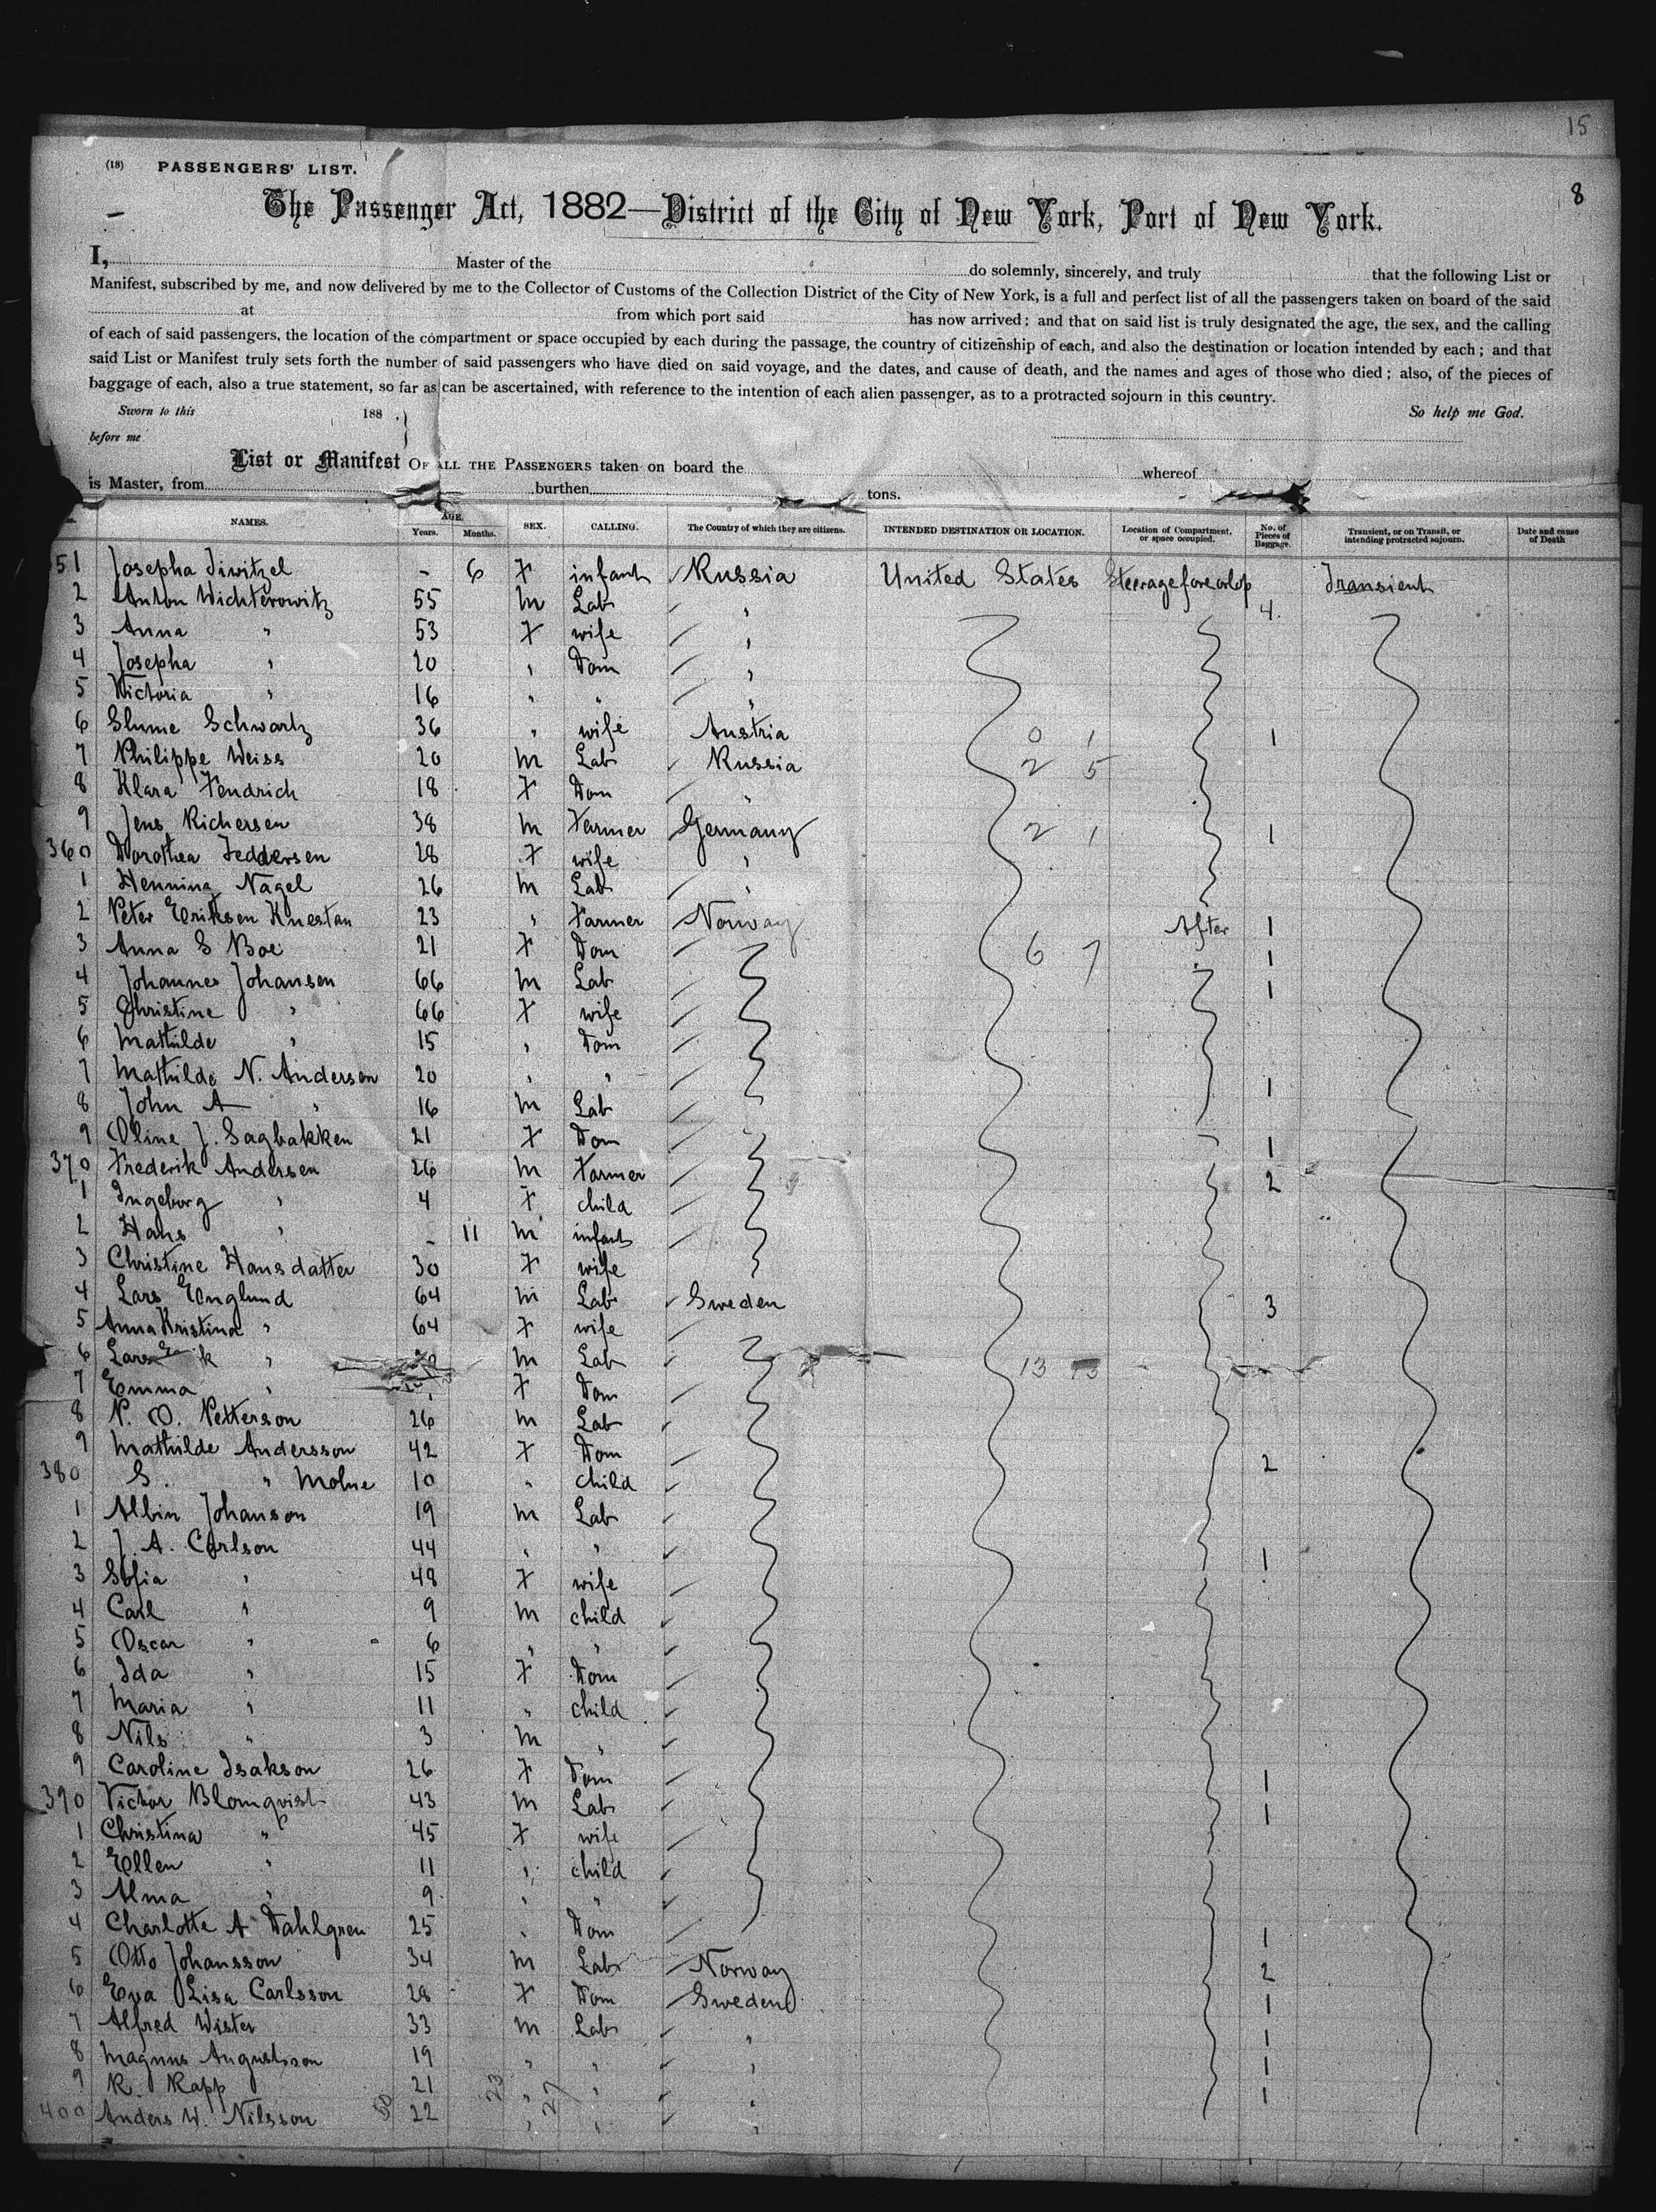 15
(18) PASSENGERS' LIST.
8
The Passenger Act, 1882—District of the City of New York, Port of New York.
I, Master of the do solemnly, sincerely, and truly that the following List or
Manifest, subscribed by me, and now delivered by me to the Collector of Customs of the Collection District of the City of New York, is a full and perfect list of all the passengers taken on board of the said
at from which port said has now arrived; and that on said list is truly designated the age, the sex, and the calling
of each of said passengers, the location of the compartment or space occupied by each during the passage, the country of citizenship of each, and also the destination or location intended by each; and that
said List or Manifest truly sets forth the number of said passengers who have died on said voyage, and the dates, and cause of death, and the names and ages of those who died; also, of the pieces of
baggage of each, also a true statement, so far as can be ascertained, with reference to the intention of each alien passenger, as to a protracted sojourn in this country.
Sworn to this 188 So help me God.
before me
List or Manifest OF ALL THE PASSENGERS taken on board the whereof
is Master, from burthen tons.
NAMES. AGE. Years. Months. SEX. CALLING. The Country of which they are citizens. INTENDED DESTINATION OR LOCATION. Location of Compartment, or space occupied. No. of Pieces of Baggage. Transient, or on Transit, or intending protracted sojourn. Date and cause of Death
51 Josepha Siwitzel - 6 F infant Russia United States Steerage fore orlop Transient
2 Anton Wichterowitz 55 m Lab " 4
3 Anna " 53 F wife "
4 Josepha " 20 " Dom "
5 Victoria " 16 " " "
6 Slume Schwartz 36 " wife Austria 0 1 1
7 Philippe Weiss 20 m Lab Russia 2 5
8 Klara Fendrich 18 F Dom "
9 Jens Richersen 38 m Farmer Germany 2 1 1
360 Dorothea Feddersen 28 F wife "
1 Henning Nagel 26 m Lab "
2 Peter Eriksen Knestan 23 " Farmer Norway After 1
3 Anna S Boe 21 F Dom 6 7 1
4 Johannes Johansen 66 m Lab 1
5 Christine " 66 F wife
6 Mathilde " 15 " Dom
7 Mathilde N. Andersen 20 " " 1
8 John A " 16 m Lab
9 Oline J. Sagbakken 21 F Dom 1
370 Frederik Andersen 26 m Farmer 2
1 Ingeborg " 4 F child
2 Hans " - 11 m infant
3 Christine Hansdatter 30 F wife
4 Lars Englund 64 m Lab Sweden 3
5 Anna Kristina " 64 F wife
6 Lars " m Lab 13
7 Emma " F Dom
8 P. O. Petterson 26 m Lab
9 Mathilde Andersson 42 F Dom 2
380 S. " Molne 10 " child
1 Albin Johanson 19 m Lab
2 J. A. Carlson 44 " " 1
3 Sofia " 48 F wife
4 Carl " 9 m child
5 Oscar " 6 " "
6 Ida " 15 F Dom
7 Maria " 11 " child
8 Nils " 3 m "
9 Caroline Isakson 26 F Dom 1
390 Victor Blomqvist 43 m Lab 1
1 Christina " 45 F wife
2 Ellen " 11 " child
3 Alma " 9 " "
4 Charlotte A Dahlgren 25 " Dom 1
5 Otto Johansson 34 m Lab Norway 2
6 Eva Lisa Carlsson 28 F Dom Sweden 1
7 Alfred Wister 33 m Lab " 1
8 Magnus Augustsson 19 " " " 1
9 K. Rapp 21 " " " 1
400 Anders W. Nilsson 22 " " "
50 23 27